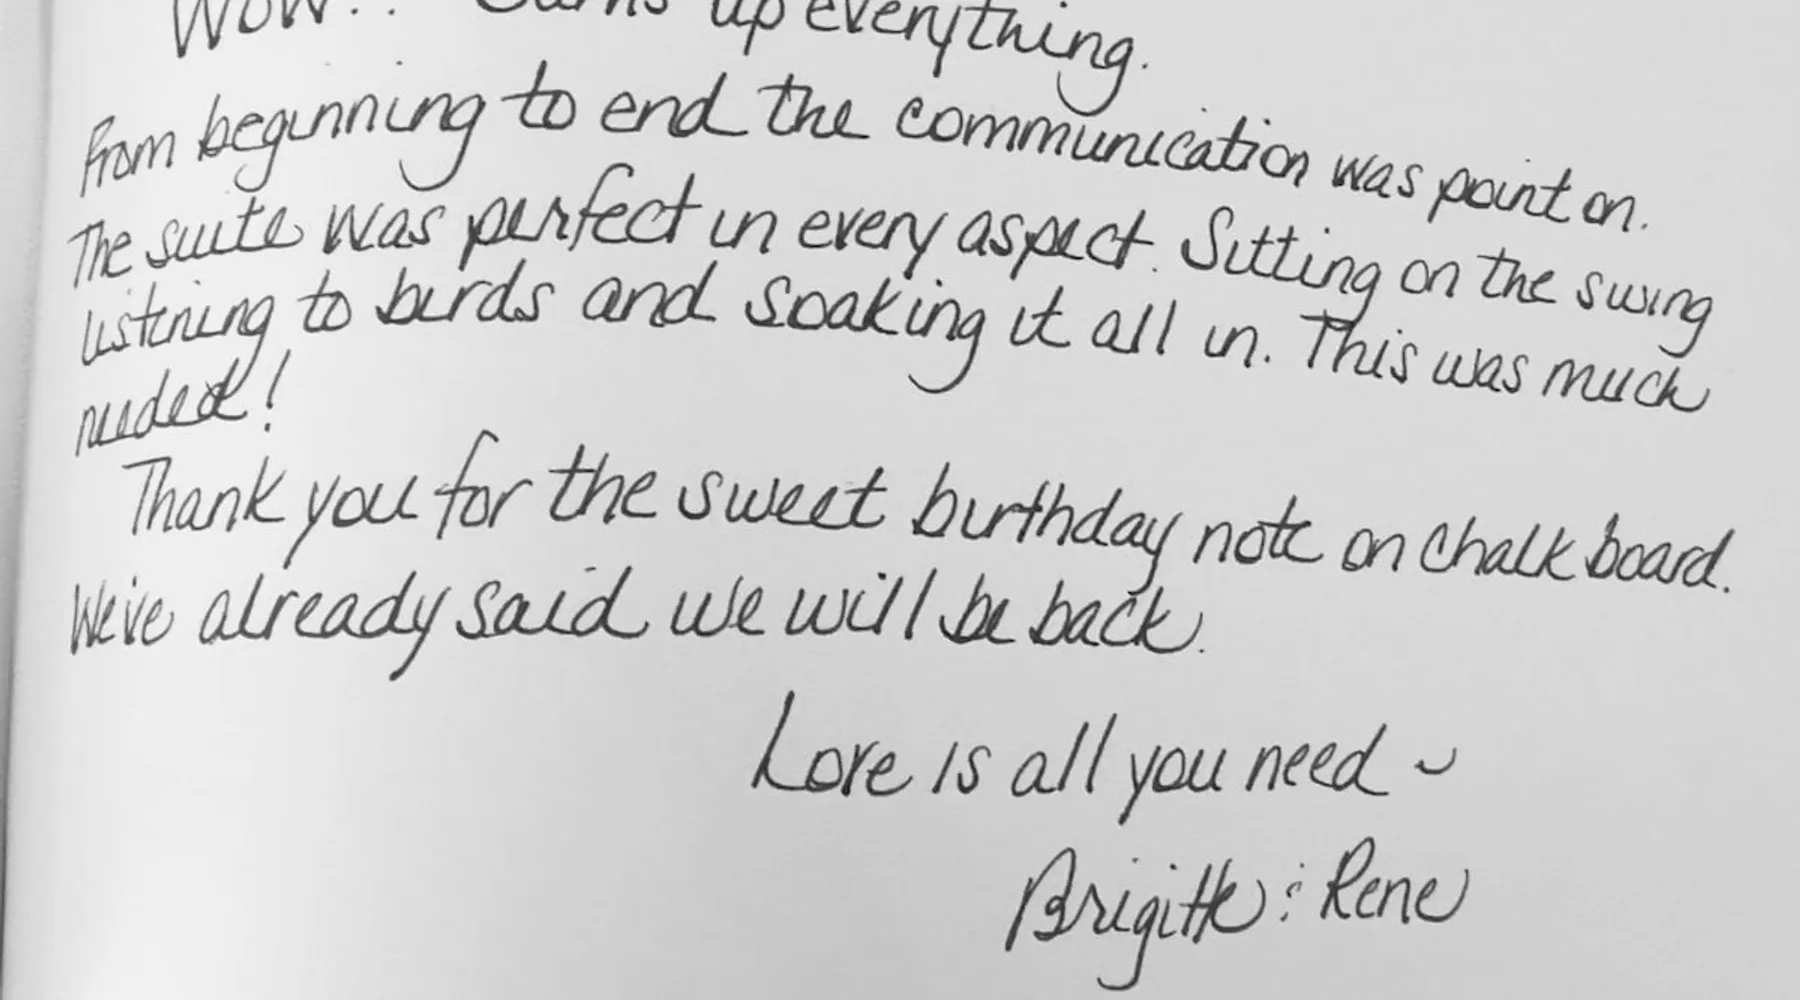 Wow!! Sums up everything.
From beginning to end the communication was point on.
The suite was perfect in every aspect. Sitting on the swing
listening to birds and soaking it all in. This was much
needed!
Thank you for the sweet birthday note on chalk board.
We've already said we will be back.
Love is all you need ~
Brigitte & Rene